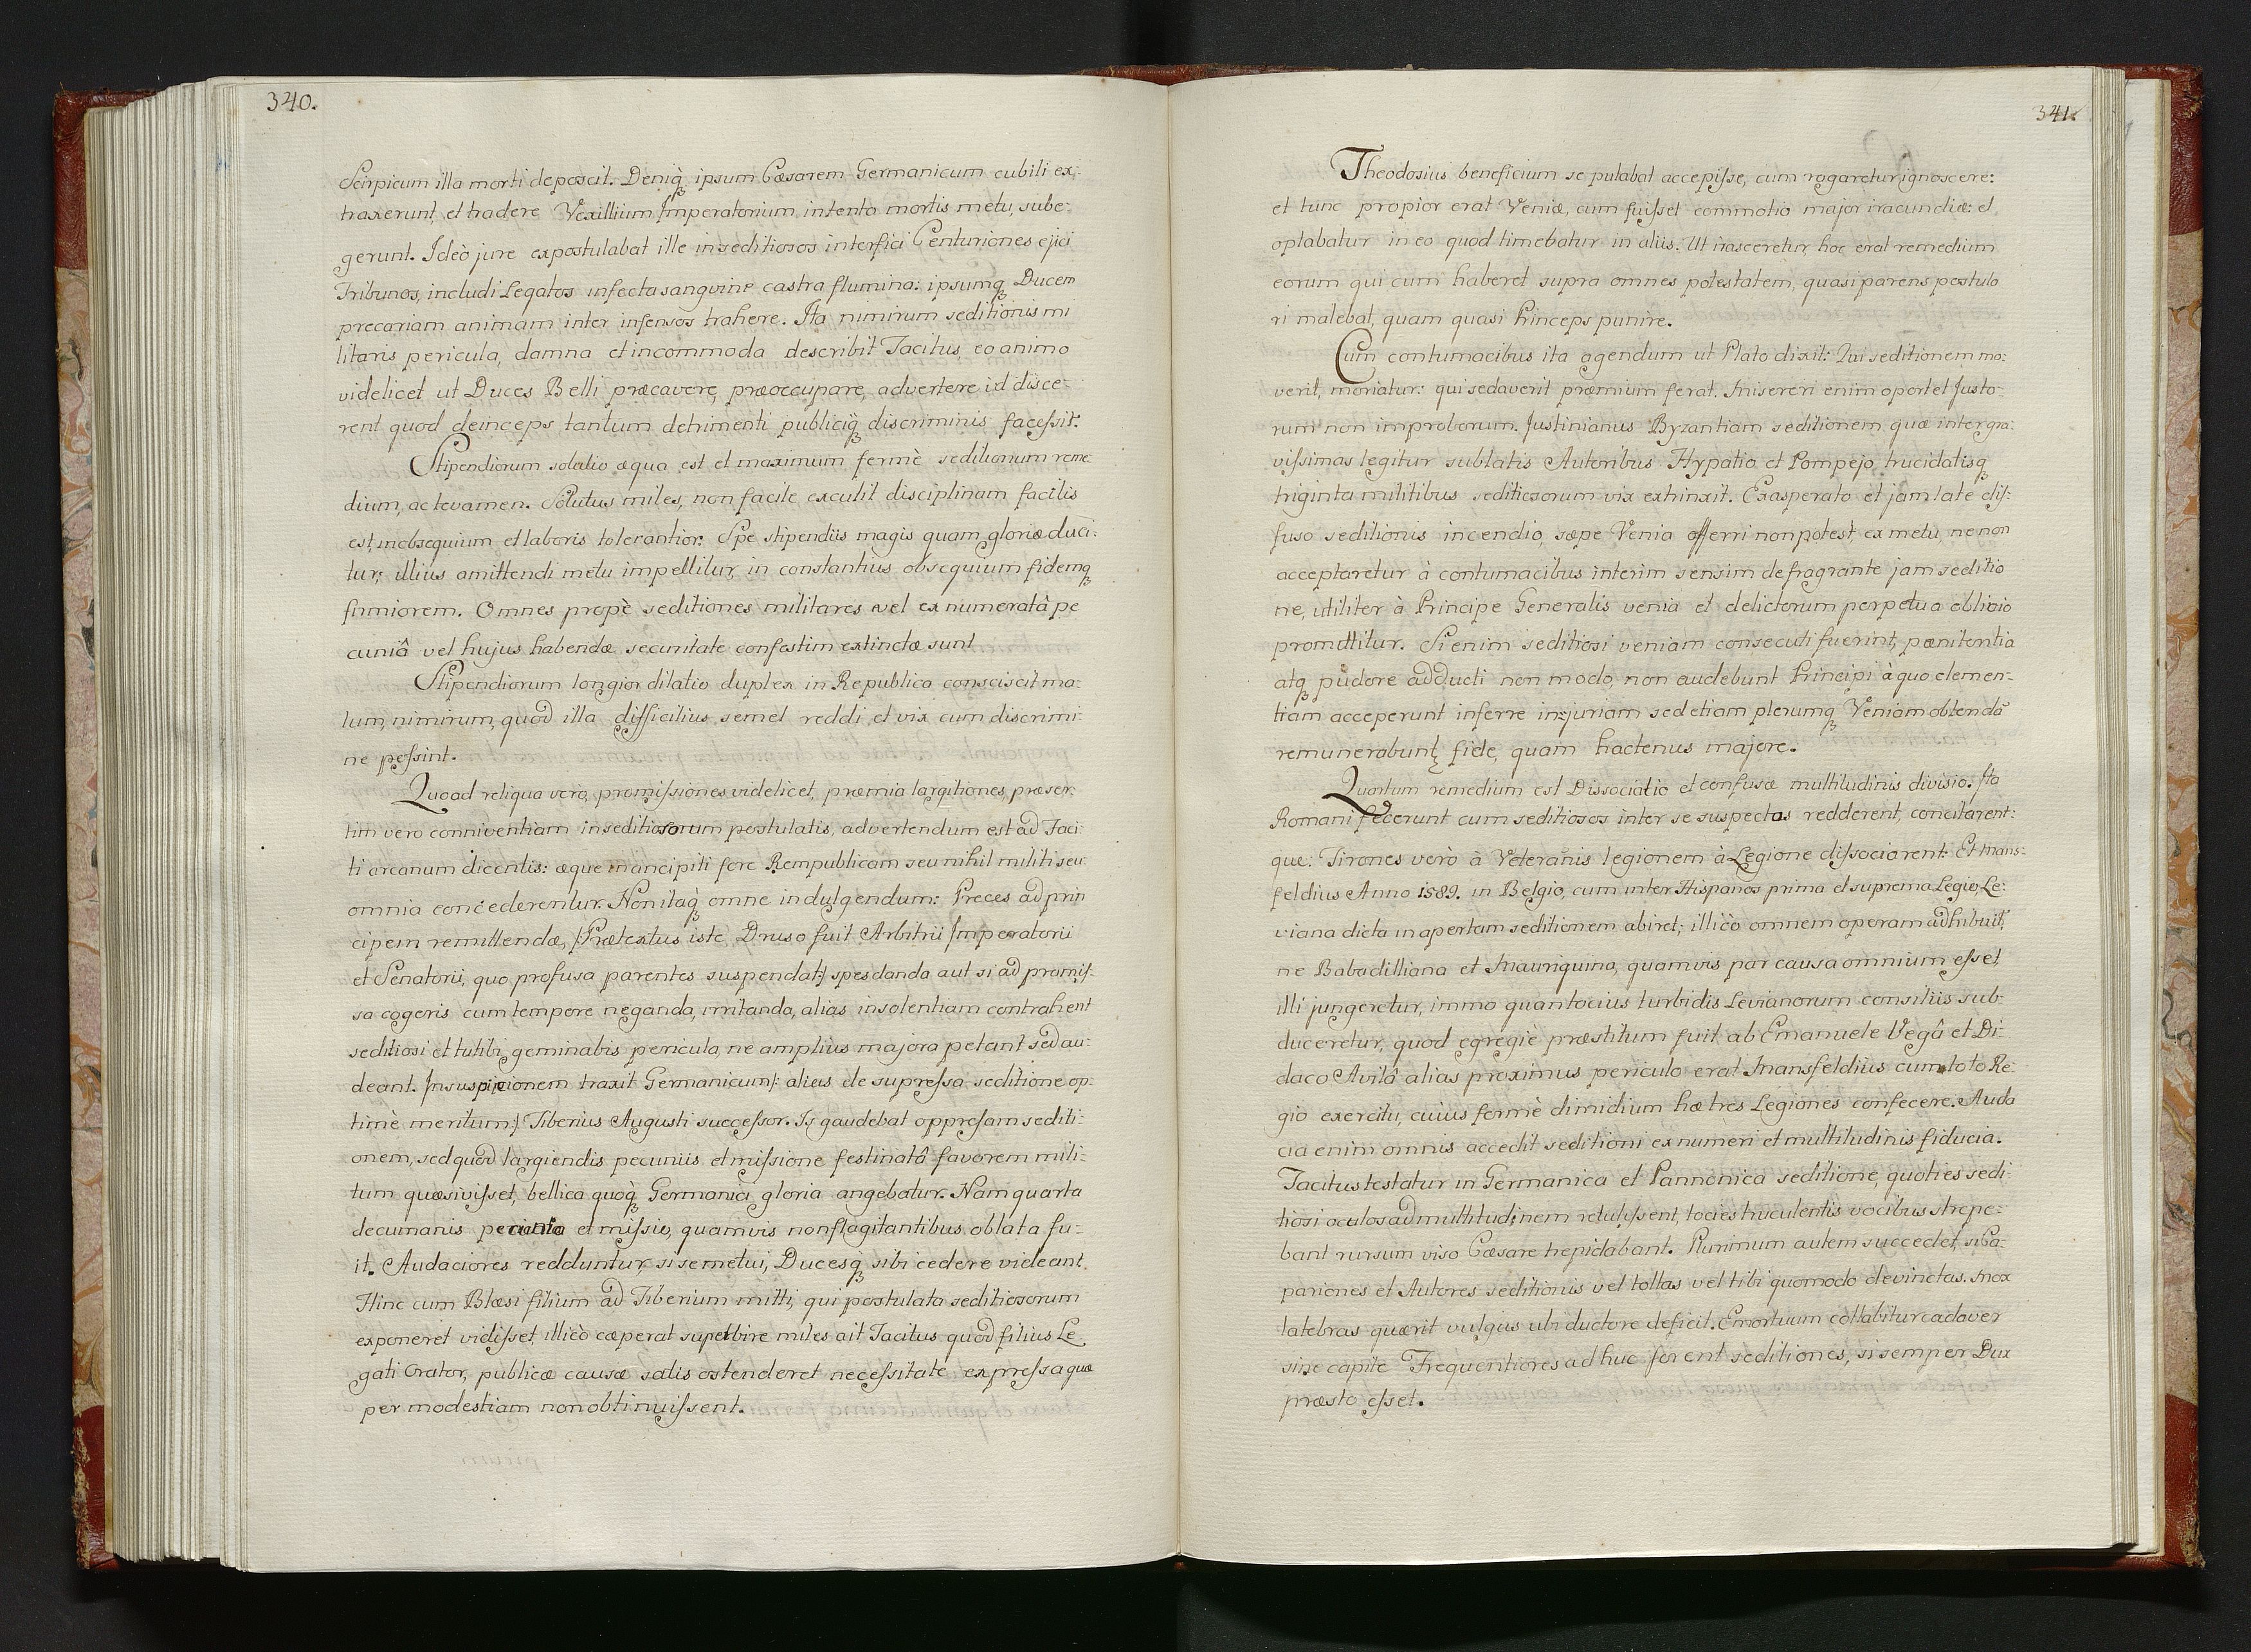 340.
Scirpicum illa morti deposcit. Deniq₃ ipsum Cæsarem Germanicum cubili ex-
traxerunt, et tradere Vexillium Imperatorium intento mortis metu, sube-
gerunt. Ideò jure expostulabat ille in seditiosos interfici Centuriones ejici
Tribunos, includi Legatos infecta sanguine castra flumina: ipsumq₃ Ducem
precariam animam inter infensos trahere. Ita nimirum seditionis mi
litaris pericula, damna et incommoda describit Tacitus, eo animo
videlicet ut Duces Belli præcavere, præoccupare, advertere id disce-
rent quod deinceps tantum detrimenti publiciq₃ discriminis facessit.
Stipendiorum solutio æqua est et maximum fermè seditionum reme
dium, ac levamen. Solutus miles, non facile exculit disciplinam facilis
est in obsequium et laboris tolerantior: Spe stipendiis magis quam gloriæ duci-
tur; illius amittendi metu impellitur, in constantius obsequium fidemq₃
firmiorem. Omnes propè seditiones militares vel ex numeratâ pe
cuniâ vel hujus habendæ securitate confestim extinctæ sunt
Stipendiorum longior dilatio duplex in Republica consciscit ma-
lum, nimirum, quod illa difficilius semel reddi, et vix cum discrimi-
ne possint.
Quoad reliqua vero, promissiones videlicet, præmia largitiones, præser-
tim vero conniventiam in seditiosorum postulatis, advertendum est ad Taci-
ti arcanum dicentis: æque mancipiti fore Rempublicam seu nihil militi seu
omnia concederentur. Non itaq₃ omne indulgendum: Preces ad prin
cipem remittendæ, /:Prætextus iste Druso fuit Arbitrii Imperatorii
et Senatorii, quo profusa parentes suspendat:/ spes danda aut si ad promis-
sa cogeris cum tempore neganda, irritanda, alias insolentiam contrahent
seditiosi et tu tibi geminabis pericula, ne amplius majora petant sed au-
deant. In suspicionem traxit Germanicum /: alias de supressa seditione op-
timè meritum:/ Tiberius Augusti successor. Is gaudebat oppressam sediti-
onem, sed quod largiendis pecuniis et missione festinatâ favorem mili-
tum quæsivisset, bellica quoq₃ Germanici gloria angebatur. Nam quarta
decumanis pecunia et missio, quamvis non flagitantibus oblata fu-
it. Audaciores redduntur, si se metui, Ducesq₃ sibi cedere videant.
Hinc cum Blæsi filium ad Tiberium mitti, qui postulata seditiosorum
exponeret vidisset, illicò cæperat superbire miles ait Tacitus quod filius Le
gati Orator, publicæ causæ satis ostenderet necessitate expressa quæ
per modestiam non obtinuissent.
341.
Theodosius beneficium se putabat accepisse, cum rogaretur ignoscere:
et tunc propior erat Veniæ, cum fuisset commotio major iracundiæ: et
optabatur in eo quod timebatur in aliis. Ut irasceretur, hoc erat remedium
eorum qui cum haberet supra omnes potestatem, quasi parens postulo
ri malebat, quam quasi Princeps punire.
Cum contumacibus ita agendum ut Plato dixit: Qui seditionem mo-
verit, moriatur: qui sedaverit præmium ferat. Misereri enim oportet Justo-
rum non improborum. Justinianus Byzantiam seditionem quæ inter gra-
vissimas legitur sublatis Autoribus Hypatio et Pompejo, trucidatisq₃
triginta militibus seditiosorum vix extrinxit. Exasperato et jam late dif-
fuso seditionis incendio, sæpe Venia offerri non potest, ex metu, ne non
acceptaretur à contumacibus interim sensim defragrante jam seditio
ne, utiliter à Principe Generalis venia et delictorum perpetua oblivio
promittitur. Si enim seditiosi veniam consecuti fuerint, pænitentia
atq₃ pudore adducti non modo, non audebunt Principi à quo clemen-
tiam acceperunt inferre injuriam sed etiam plerumq₃ Veniam obtendâ
remunerabunt, fide, quam hactenus majore.
Quartum remedium est Dissociatio et confusæ multitudinis divisio. Ita
Romani fecerunt cum seditiosos inter se suspectos redderent, concitarent-
que: Tirones verò à Veteranis legionem à Legione dissociarent. Et Mans-
feldius Anno 1589. in Belgio, cum inter Hispanos prima et suprema Legio Le-
viana dicta in apertam seditionem abiret; illicò omnem operam adhibuit,
ne Babadilliana et Mauriquina, quamvis par causa omnium esset,
illi jungeretur, immo quantocius turbidis Levianorum consiliis sub-
duceretur, quod egregiè præstitum fuit ab Emanuele Vegâ et Di-
daco Avilâ alias proximus periculo erat Mansfeldius cum toto Re-
gio exercitu, cuius fermè dimidium hæ tres Legiones confecere. Auda
cia enim omnis accedit seditioni ex numeri et multitudinis fiducia.
Tacitus testatur in Germanica et Pannonica seditione, quoties sedi-
tiosi oculos ad multitudinem retulissent, toties truculentis vocibus strepe-
bant rursum viso Cæsare trepidabant. Plurimum autem succedet, si Ca-
pariones et Autores seditionis vel tollas vel tibi quomodo devinctas. Mox
latebras quærit vulgus ubi ductore deficit. Emortuum collabitur cadaver
sine capite Frequentiores ad huc forent seditiones, si semper Dux
præsto esset.